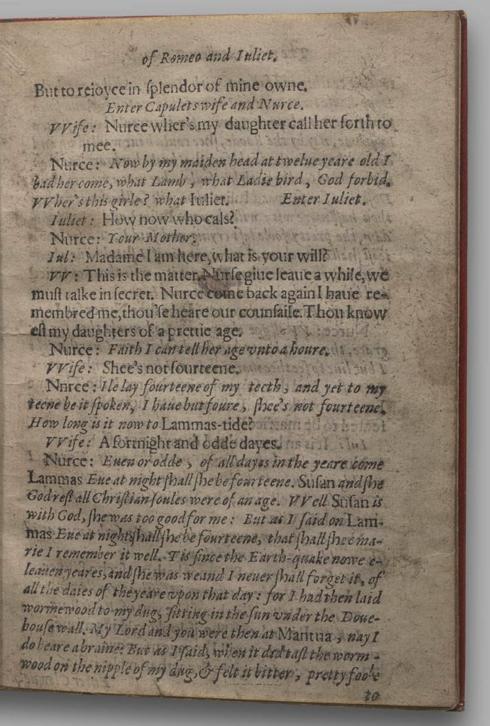 of Romeo and Iuliet.
But to reioyce in splendor of mine owne.
Enter Capulets wife and Nurce.
VVife: Nurce wher's my daughter call her forth to
mee.
Nurce: Now by my maiden head at twelue yeare old I
bad her come, what Lamb, what Ladie bird, God forbid.
VVher's this girle? what Iuliet. Enter Iuliet.
Iuliet: How now who cals?
Nurce: Your Mother.
Iul: Madame I am here, what is your will?
VV: This is the matter. Nurse giue leaue a while, we
must talke in secret. Nurce come back again I haue re-
membred mee, thou'se heare our counsaile. Thou know
est my daughters of a prettie age.
Nurce: Faith I can tell her age vnto a houre.
VVife: Shee's not fourteene.
Nnrce: Ile lay fourteene of my teeth, and yet to my
teene be it spoken, I haue but foure, shee's not fourteene.
How long is it now to Lammas-tide?
VVife: A fortnight and odde dayes.
Nurce: Euen or odde, of all dayes in the yeare come
Lammas Eue at night shall she be fourteene. Susan and she
God rest all Christian soules were of an age. VVell Susan is
with God, she was too good for me: But as I said on Lam-
mas Eue at night shall she be fourteene, that shall shee ma-
rie I remember it well. Tis since the Earth-quake nowe e-
leauen yeares, and she was weand I neuer shall forget it, of
all the daies of the yeare vpon that day: for I had then laid
wormewood to my dug, sitting in the sun vnder the Doue-
house wall. My Lord and you were then at Mantua, nay I
do beare a braine: But as I said, when it did tast the worm-
wood on the nipple of my dug, & felt it bitter, pretty foole
to